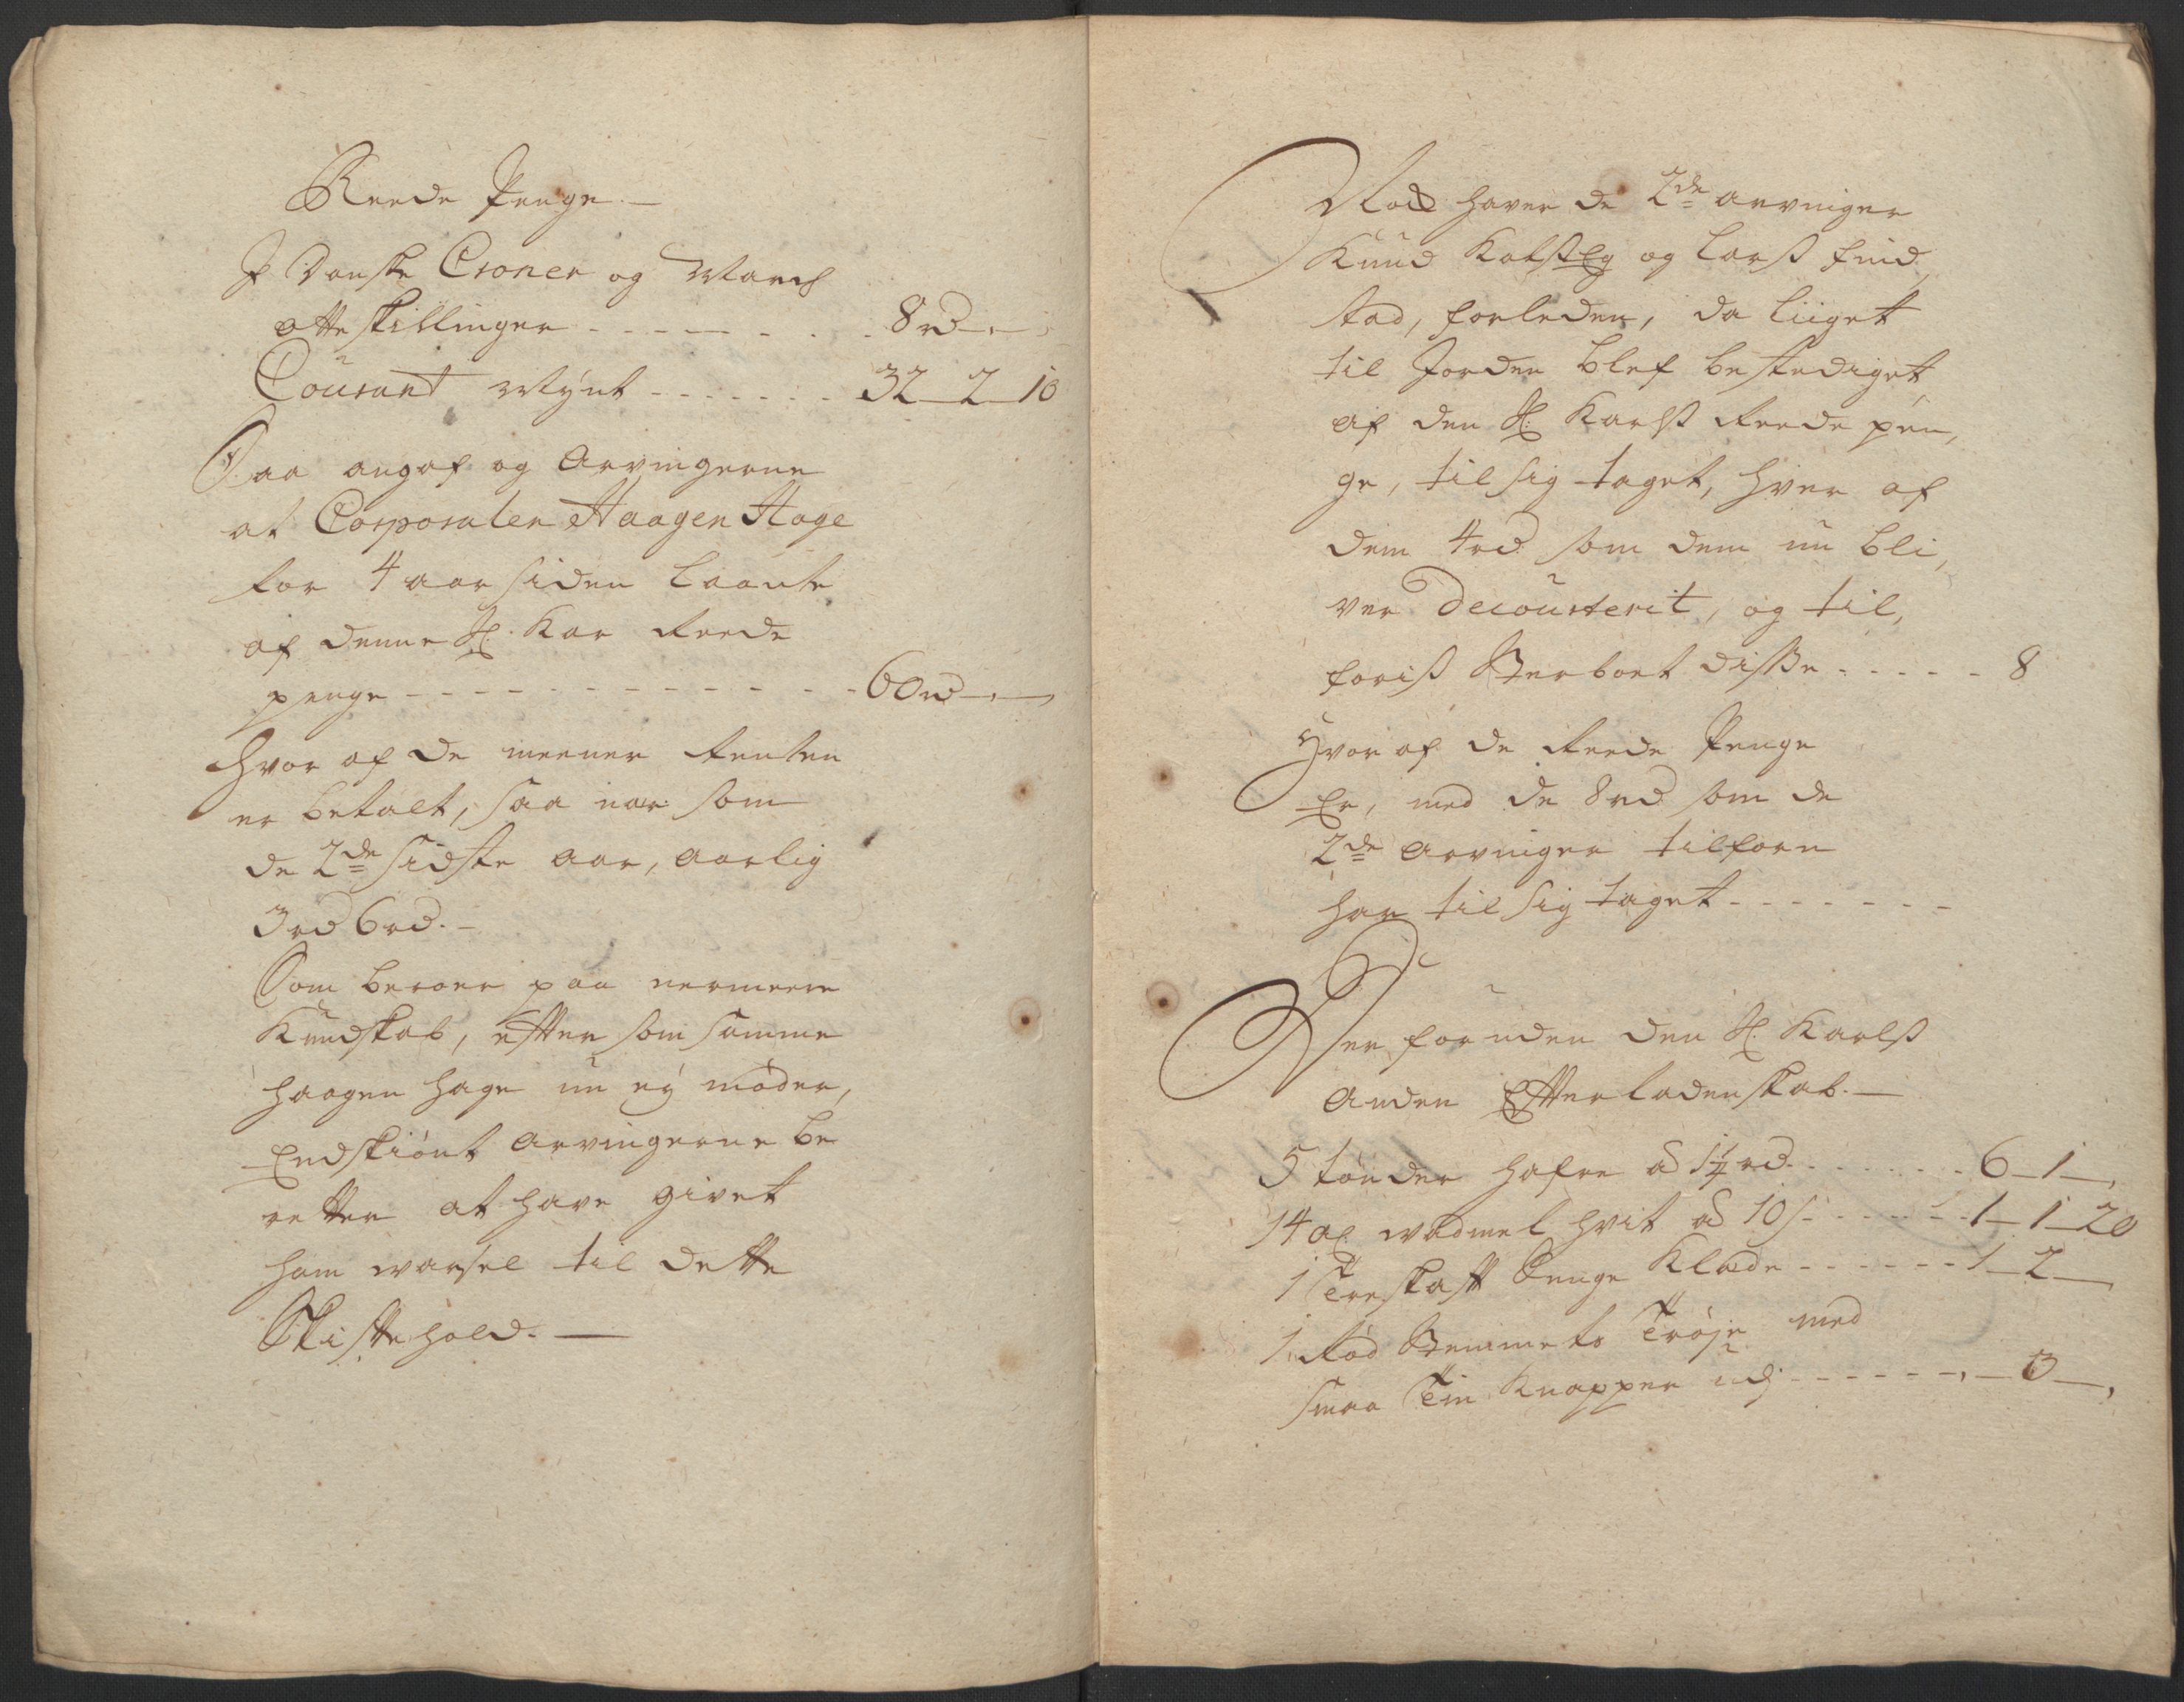 Reede Penge. —
I Danske Croner og March
otteskillinger - - - - - - - - 8 rd — „ — „
Courant Mÿnt - - - - - - - 32 — 2 — 10
Saa angaf og Arvingerne
at Corporalen Haagen Hage
for 4 aar siden laante
af denne Sl. Kar Reede
penge - - - - - - - - - - - - 60 rd — „ —
Hvor af de meener Renten
er betalt, saa nær som
de 2de sidste aar, aarlig
3 rd 6 rd. —
Som beroer paa nermere
Kundskab, efter som samme
haagen hage nu eÿ møder,
Endskiønt Arvingerne be
retter at have givet
ham warsel til dette
Skiftehold. —
Nock haver de 2de arvinger
Knud Kolstg og Lars Find,
stad, forleden, da Liiget
til Jorden blef bestediget,
af den Sl. Karls Reede pen,
ge, til sig taget, hver af
dem 4 rd som dem nu bli,
ver Decourterit, og til,
foris Sterboet disse - - - - - 8
Hvor af de Reede Penge
Er, med de 8 rd som de
2de arvinger tilforn
har til sig taget - - - - - - -
Her foruden den Sl. Karls
anden Efterladenskab. —
5 tønder hafre à 1 1/4 rd - - - - - - 6 — 1 — „
14 al. wadmel hvit à 10 s - - - - - - 1 — 1 — 20
1 Treskaft Senge Klæde - - - - - - 1 — 2 —
1 Rød Trøje med
smaa Tin Knapper udj - - - - - - „ — 3 — „